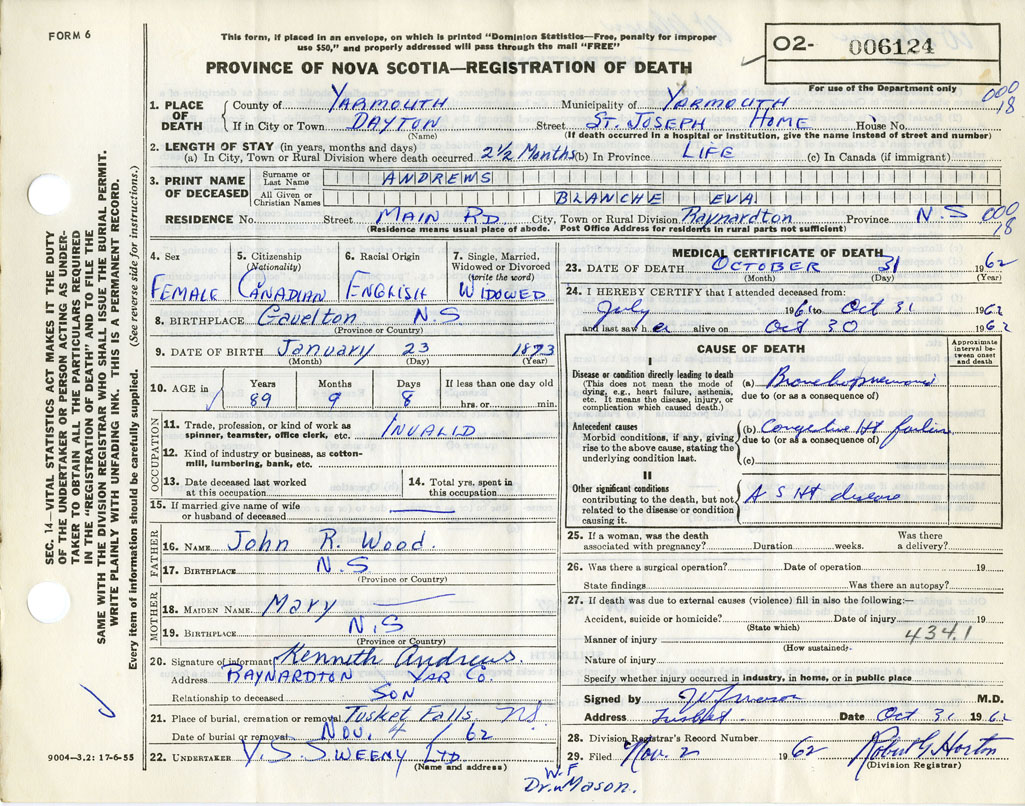 FORM 6
This form, if placed in an envelope, on which is printed "Dominion Statistics—Free, penalty for improper
use $50," and properly addressed will pass through the mail "FREE"
02- 006124
PROVINCE OF NOVA SCOTIA—REGISTRATION OF DEATH
For use of the Department only
000
18
1. PLACE OF DEATH County of YARMOUTH Municipality of YARMOUTH
If in City or Town DAYTON Street ST. JOSEPH HOME House No.
(Name) (If death occurred in a hospital or institution, give the name instead of street and number)
2. LENGTH OF STAY (in years, months and days)
(a) In City, Town or Rural Division where death occurred 2 1/2 Months (b) In Province LIFE (c) In Canada (if immigrant)
3. PRINT NAME OF DECEASED Surname or Last Name ANDREWS
All Given or Christian Names BLANCHE EVA
RESIDENCE No. Street MAIN RD City, Town or Rural Division Raynardton Province N.S
000
18
(Residence means usual place of abode. Post Office Address for residents in rural parts not sufficient)
4. Sex 5. Citizenship (Nationality) 6. Racial Origin 7. Single, Married, Widowed or Divorced (write the word)
FEMALE CANADIAN ENGLISH WIDOWED
8. BIRTHPLACE Gavelton N.S
(Province or Country)
9. DATE OF BIRTH January 23 1873
(Month) (Day) (Year)
10. AGE in Years Months Days If less than one day old
89 9 8 hrs. or min.
OCCUPATION
11. Trade, profession, or kind of work as spinner, teamster, office clerk, etc. INVALID
12. Kind of industry or business, as cotton-mill, lumbering, bank, etc.
13. Date deceased last worked at this occupation
14. Total yrs. spent in this occupation
15. If married give name of wife or husband of deceased
FATHER
16. NAME John R. Wood.
17. BIRTHPLACE N.S
(Province or Country)
MOTHER
18. MAIDEN NAME Mary
19. BIRTHPLACE N.S
(Province or Country)
20. Signature of informant Kenneth Andrews.
Address RAYNARDTON YAR Co.
Relationship to deceased SON
21. Place of burial, cremation or removal Tusket Falls NS
Date of burial or removal NOV. 4 / 62
22. UNDERTAKER V.S SWEENY LTD
(Name and address)
MEDICAL CERTIFICATE OF DEATH
23. DATE OF DEATH OCTOBER 31 1962
(Month) (Day) (Year)
24. I HEREBY CERTIFY that I attended deceased from:
July 196 to Oct 31 1962
and last saw her alive on Oct 30 1962
CAUSE OF DEATH
Approximate interval between onset and death
I
Disease or condition directly leading to death
(This does not mean the mode of dying, e.g., heart failure, asthenia, etc. It means the disease, injury, or complication which caused death.)
(a) Bronchopneumonia
due to (or as a consequence of)
Antecedent causes
Morbid conditions, if any, giving rise to the above cause, stating the underlying condition last.
(b) Congestive Ht failure
due to (or as a consequence of)
(c)
II
Other significant conditions
contributing to the death, but not related to the disease or condition causing it.
A S Ht disease
25. If a woman, was the death associated with pregnancy? Duration weeks. Was there a delivery?
26. Was there a surgical operation? Date of operation 19
State findings Was there an autopsy?
27. If death was due to external causes (violence) fill in also the following:—
Accident, suicide or homicide? Date of injury 19
(State which)
434.1
Manner of injury
(How sustained)
Nature of injury
Specify whether injury occurred in industry, in home, or in public place
Signed by M.D.
Address Tusket Date Oct 31 1962
28. Division Registrar's Record Number
29. Filed Nov. 2 1962 Robert G Horton
(Division Registrar)
W.F
Dr. Mason.
9004—3.2: 17-6-55
SEC. 14—VITAL STATISTICS ACT MAKES IT THE DUTY
OF THE UNDERTAKER OR PERSON ACTING AS UNDER-
TAKER TO OBTAIN ALL THE PARTICULARS REQUIRED
IN THE "REGISTRATION OF DEATH" AND TO FILE THE
SAME WITH THE DIVISION REGISTRAR WHO SHALL ISSUE THE BURIAL PERMIT.
WRITE PLAINLY WITH UNFADING INK. THIS IS A PERMANENT RECORD.
Every item of information should be carefully supplied. (See reverse side for instructions.)